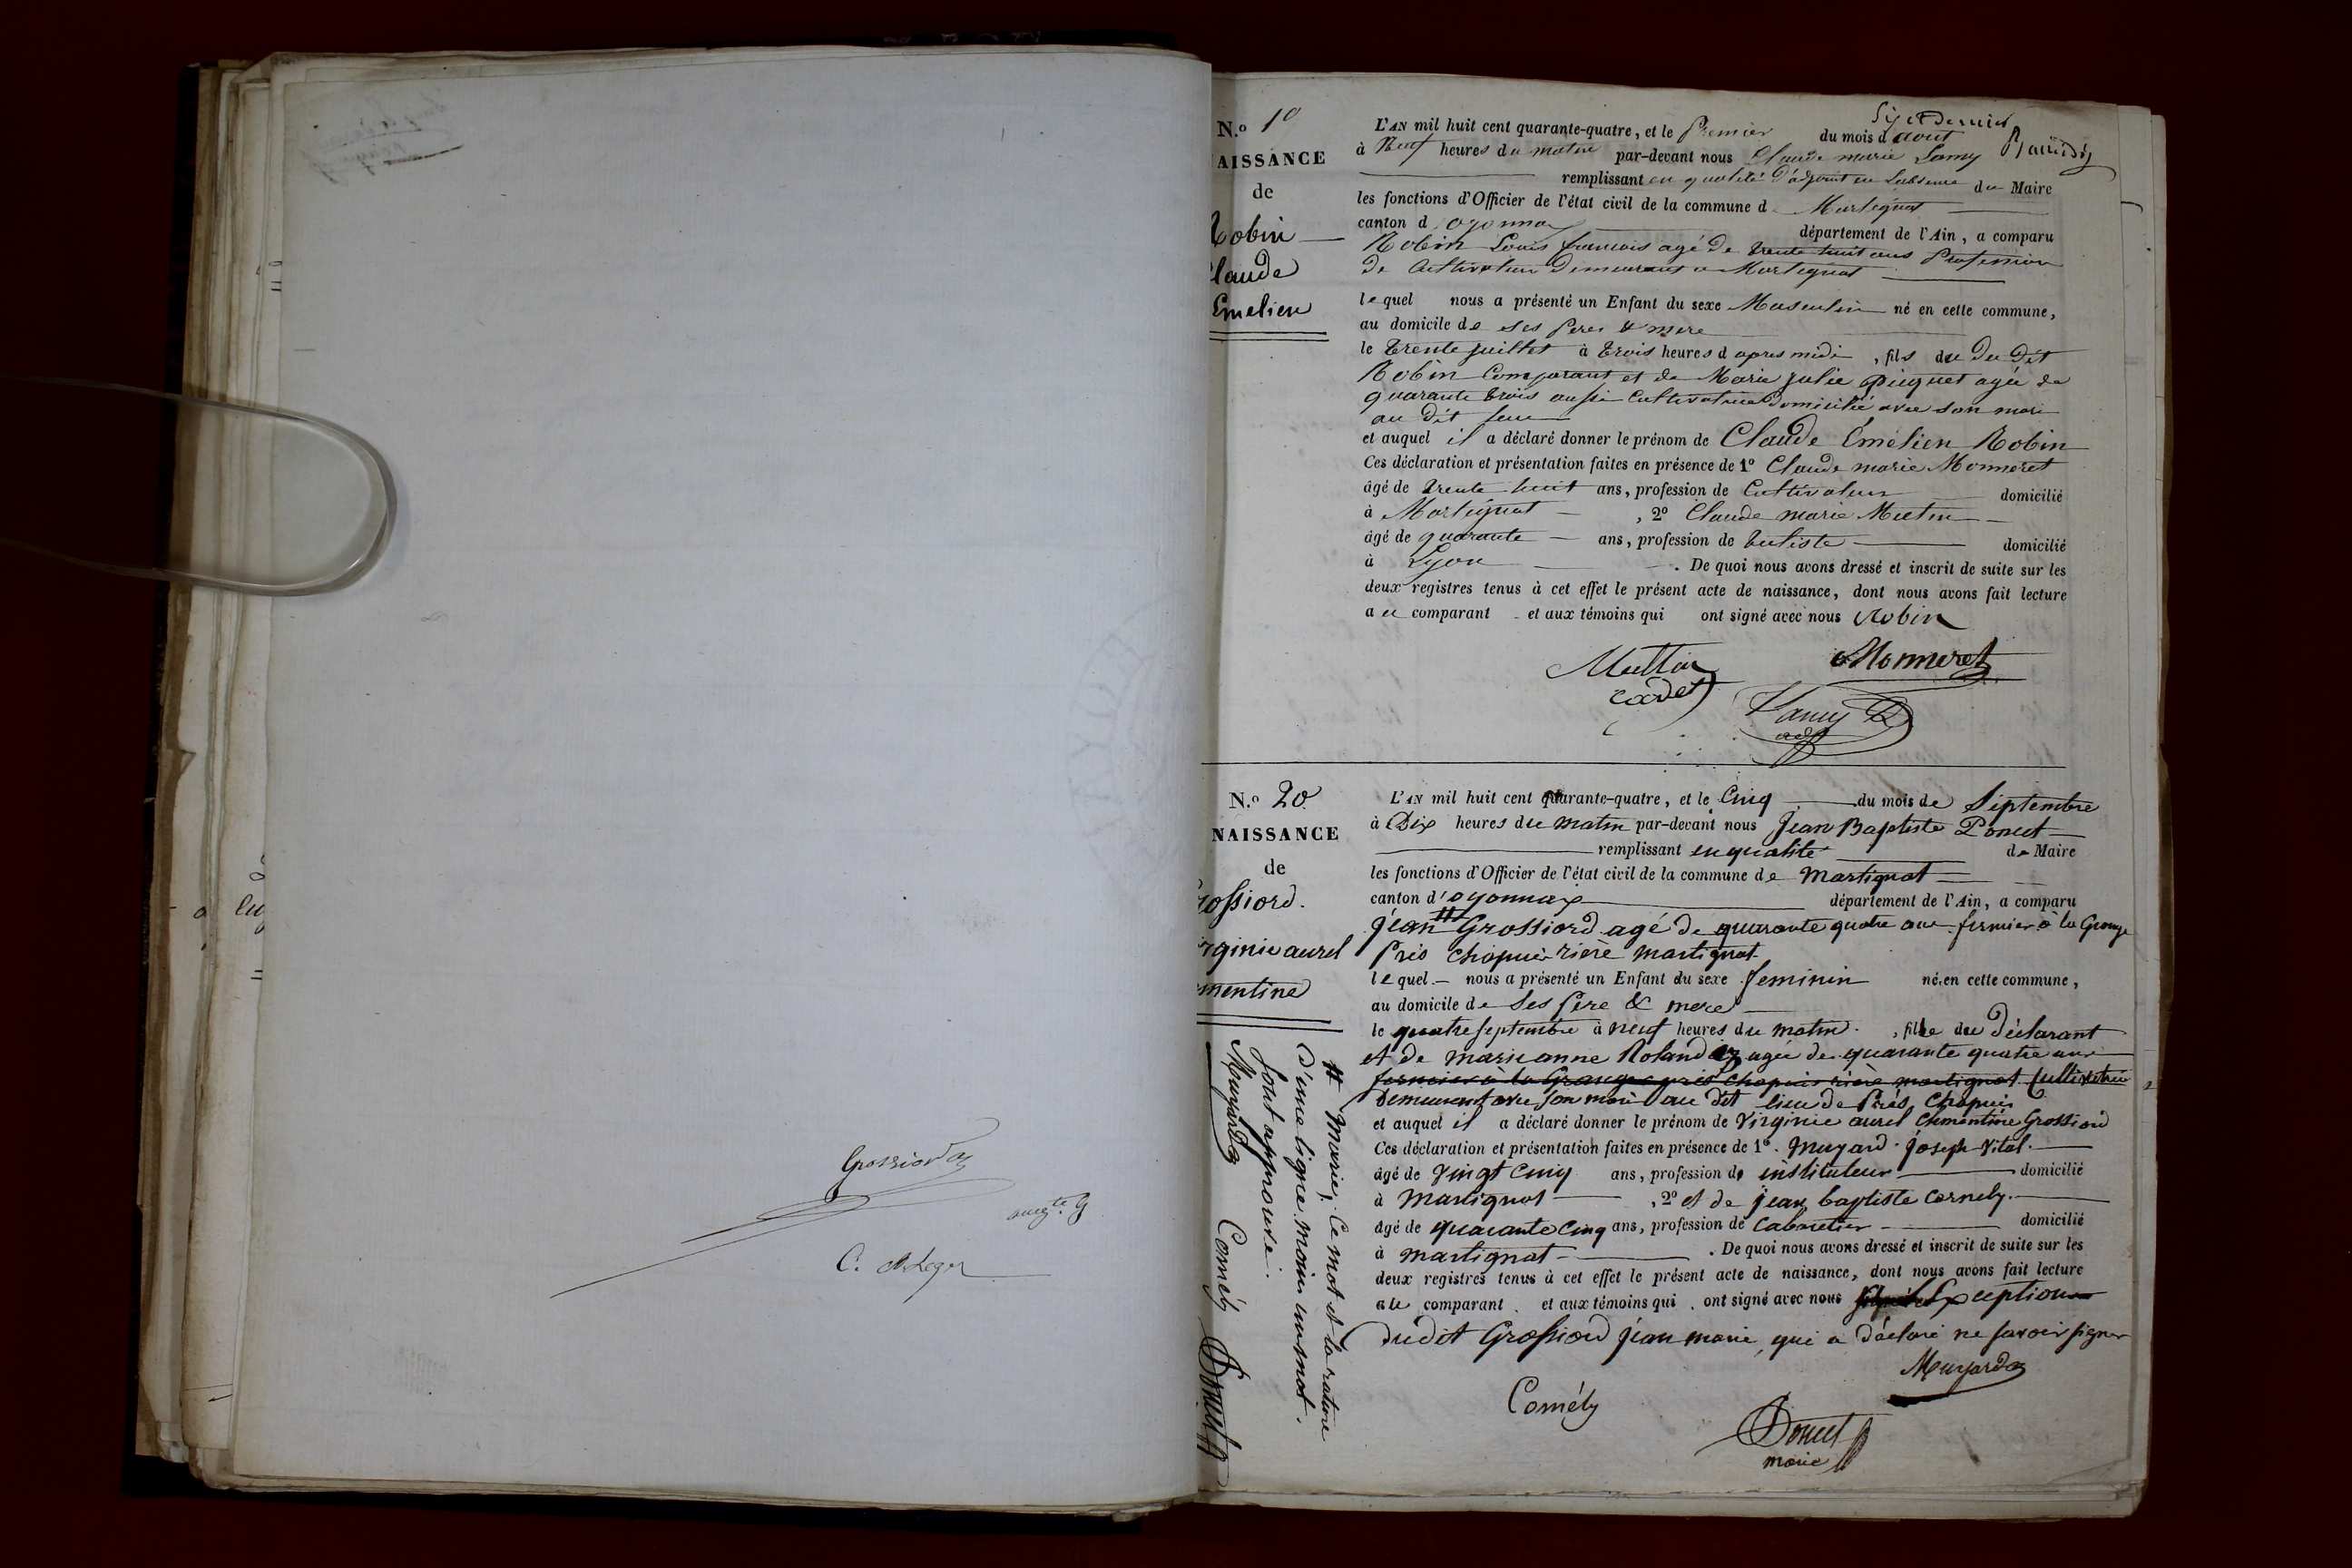 Grossiord
C. A. Leger
Six et dernier
N.o 1o
L'AN mil huit cent quarante-quatre, et le Premier du mois d aout
AISSANCE
à Neuf heures du matin par-devant nous Claude marie Lamy
de
remplissant en qualité d'adjoint en Labsence du Maire
les fonctions d'Officier de l'état civil de la commune d Martignat
Robin
canton d oyonnax département de l'Ain, a comparu
Robin Louis francois agé de trente huit ans Profession
Claude
de Cultivateur Demeurant a Martignat
Emelien
lequel nous a présenté un Enfant du sexe Masculin né en cette commune,
au domicile de ses peres & mere
le trente juillet à trois heures d apres midi, fils du du dit
Robin Comparant et de Marie julie piquet agée de
quarante trois aussi Cultivatrice domiciliée avec son mari
au dit lieu
et auquel il a déclaré donner le prénom de Claude Émélien Robin
Ces déclaration et présentation faites en présence de 1o Claude marie Monneret
âgé de trente huit ans, profession de Cultivateur domicilié
à Martignat, 2o Claude marie Mutin
âgé de quarante ans, profession de tuliste domicilié
à Lyon. De quoi nous avons dressé et inscrit de suite sur les
deux registres tenus à cet effet le présent acte de naissance, dont nous avons fait lecture
au comparant et aux témoins qui ont signé avec nous Robin
Monneret
cadet
Lamy
adjt
N.o 20.
L'AN mil huit cent quarante-quatre, et le Cinq du mois de Septembre
NAISSANCE
à Dix heures du matin par-devant nous Jean Baptiste Poncet
de
remplissant en qualité de Maire
les fonctions d'Officier de l'état civil de la commune de Martignat
rossiord.
canton d'oyonnax département de l'Ain, a comparu
jean # Grossiord agé de quarante quatre ans fermier à la Grange
irginie aurel
Prés chapuis rière martignat
mentine
lequel nous a présenté un Enfant du sexe feminin né en cette commune,
au domicile de Ses Père & mere
le quatre septembre à neuf heures du matin, fille du déclarant
et de marie anne Rolandez agée de quarante quatre ans
fermier à la Grange prés chapuis rière martignat Cultivatrice
demeurant avec son mari au dit lieu de Prés Chapuis
et auquel il a déclaré donner le prénom de Virginie aurel Clementine Grossiord
Ces déclaration et présentation faites en présence de 1o. Muyard joseph Vital.
âgé de Vingt Cinq ans, profession de instituteur domicilié
à Martignat, 2o et de jean baptiste Cornely.
âgé de quarante Cinq ans, profession de Cabaretier domicilié
à martignat. De quoi nous avons dressé et inscrit de suite sur les
deux registres tenus à cet effet le présent acte de naissance, dont nous avons fait lecture
au comparant et aux témoins qui ont signé avec nous Exception
dudit Grossiord jean marie, qui a déclaré ne savoir signer
Muyard
Comély
Poncet
maire
# Marie, Ce mot et la rature
d'une ligne moins un mot.
Sont approuvé.
Muyard Comély Poncet